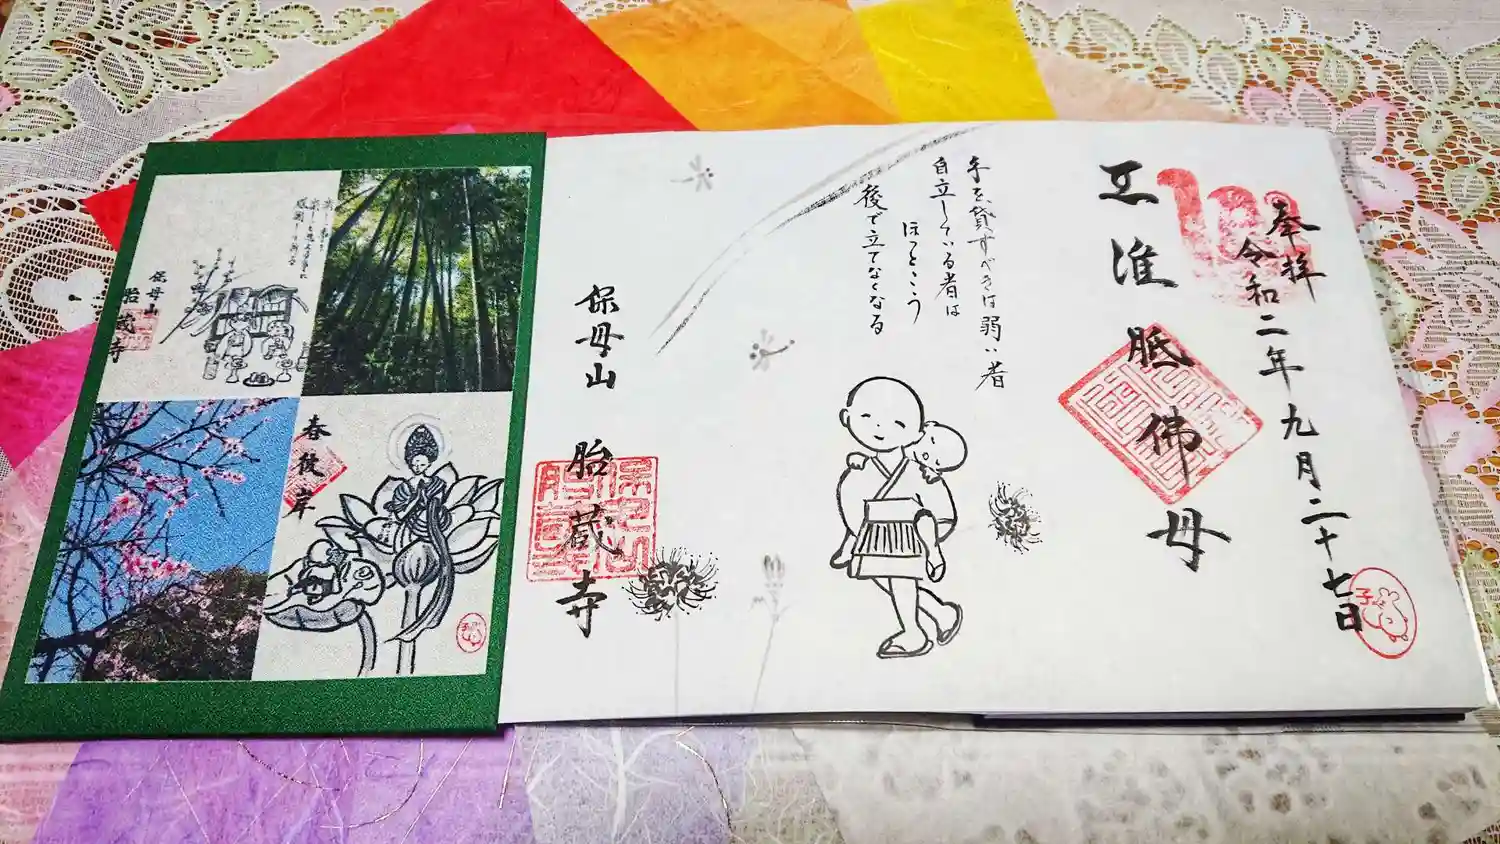 奉拝
令和二年九月二十七日
准胝佛母
手を貸すべきは弱い者
自立している者は
ほっとこう
後で立てなくなる
保母山 胎蔵寺
子
春彼岸
保母山
胎蔵寺